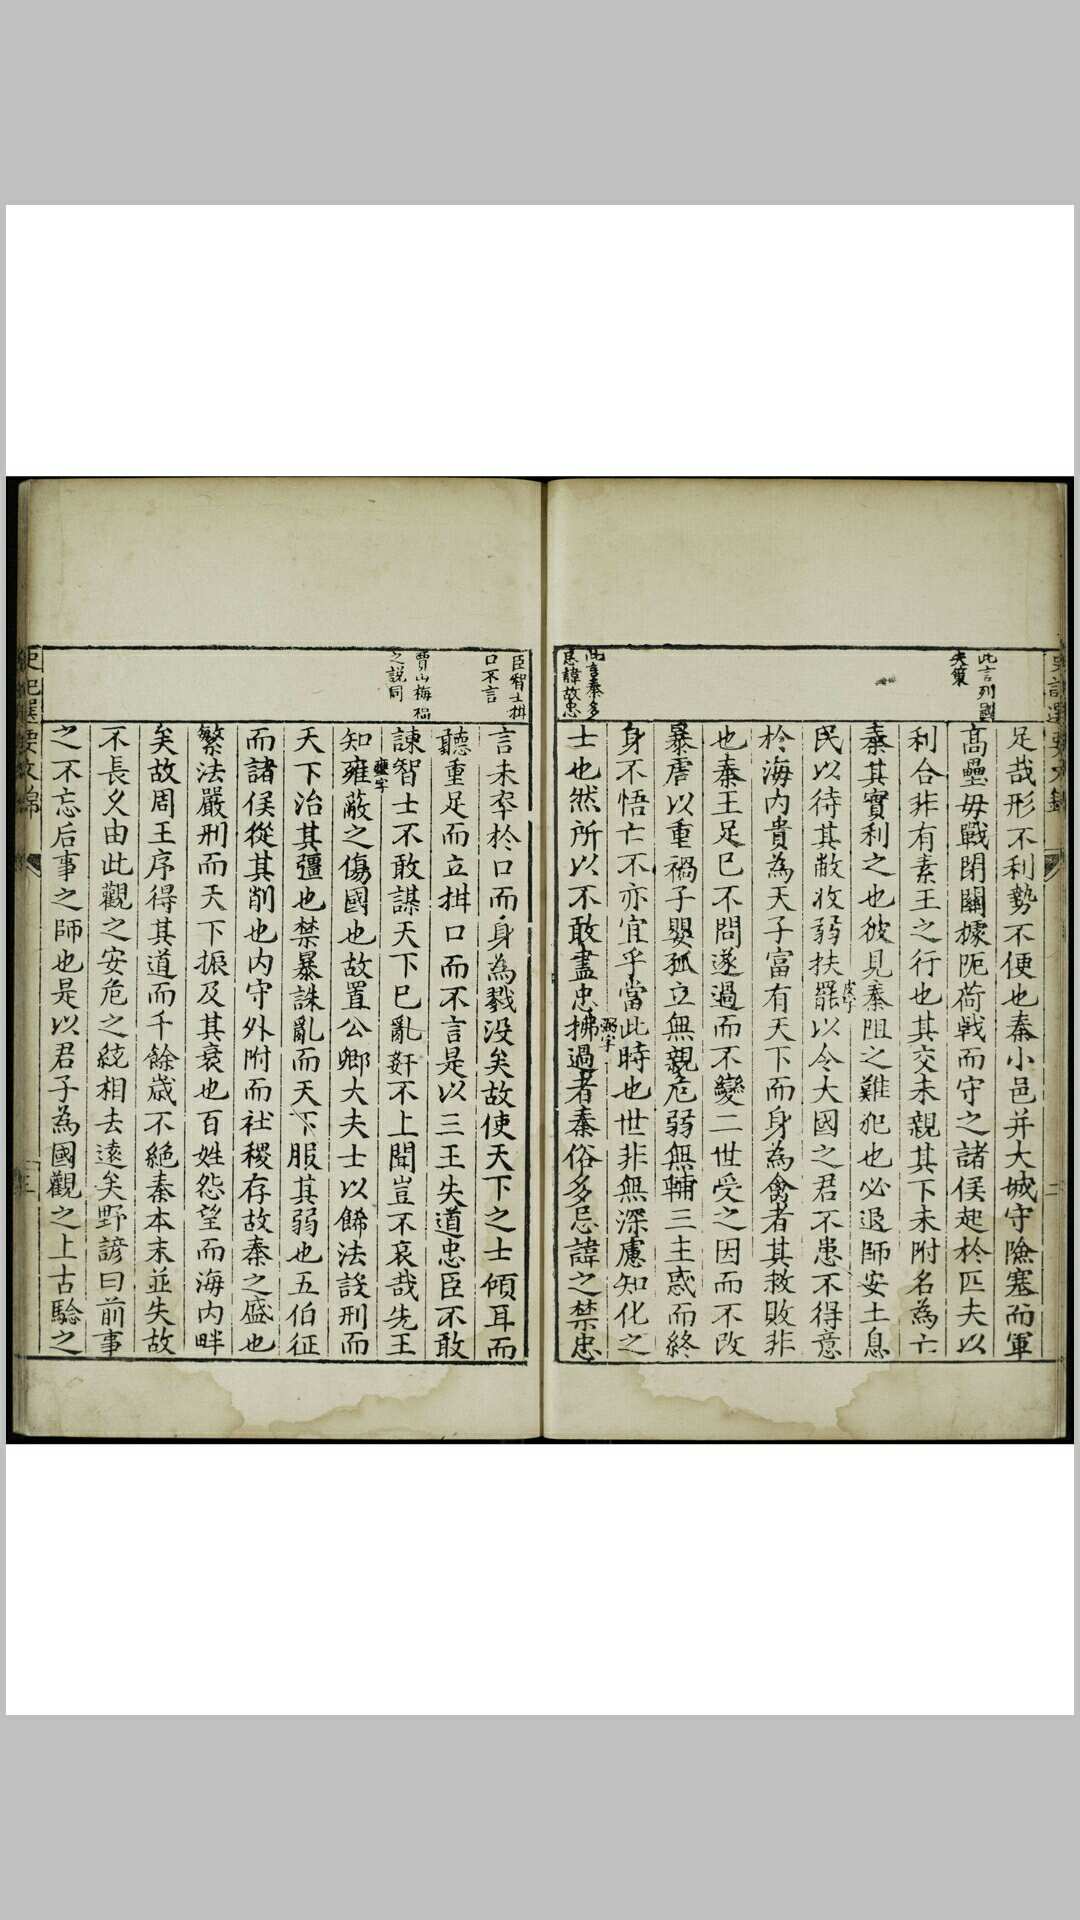 此言列國
失策
足哉形不利勢不便也秦小邑并大城守險塞而軍
高壘毋戰閉關據阨荷戟而守之諸侯起於匹夫以
利合非有素王之行也其交未親其下未附名為亡
秦其實利之也彼見秦阻之難犯也必退師安土息
民以待其敝收弱扶罷以令大國之君不患不得意
於海内貴為天子富有天下而身為禽者其救敗非
也秦王足已不問遂過而不變二世受之因而不改
暴虐以重禍子嬰孤立無親危弱無輔三主惑而終
身不悟亡不亦宜乎當此時也世非無深慮知化之
弼字
此言秦多
忌諱故忠
士也然所以不敢盡忠拂過者秦俗多忌諱之禁忠
臣智士拑
口不言
言未卒於口而身為戮没矣故使天下之士傾耳而
聽重足而立拑口而不言是以三王失道忠臣不敢
賈山梅福
之說同
諫智士不敢謀天下已亂奸不上聞豈不哀哉先王
壅字
知雍蔽之傷國也故置公卿大夫士以飾法設刑而
天下治其彊也禁暴誅亂而天下服其弱也五伯征
而諸侯從其削也内守外附而社稷存故秦之盛也
繁法嚴刑而天下振及其衰也百姓怨望而海内畔
矣故周王序得其道而千餘歲不絶秦本末並失故
不長久由此觀之安危之綂相去遠矣野諺曰前事
之不忘后事之師也是以君子為國觀之上古驗之